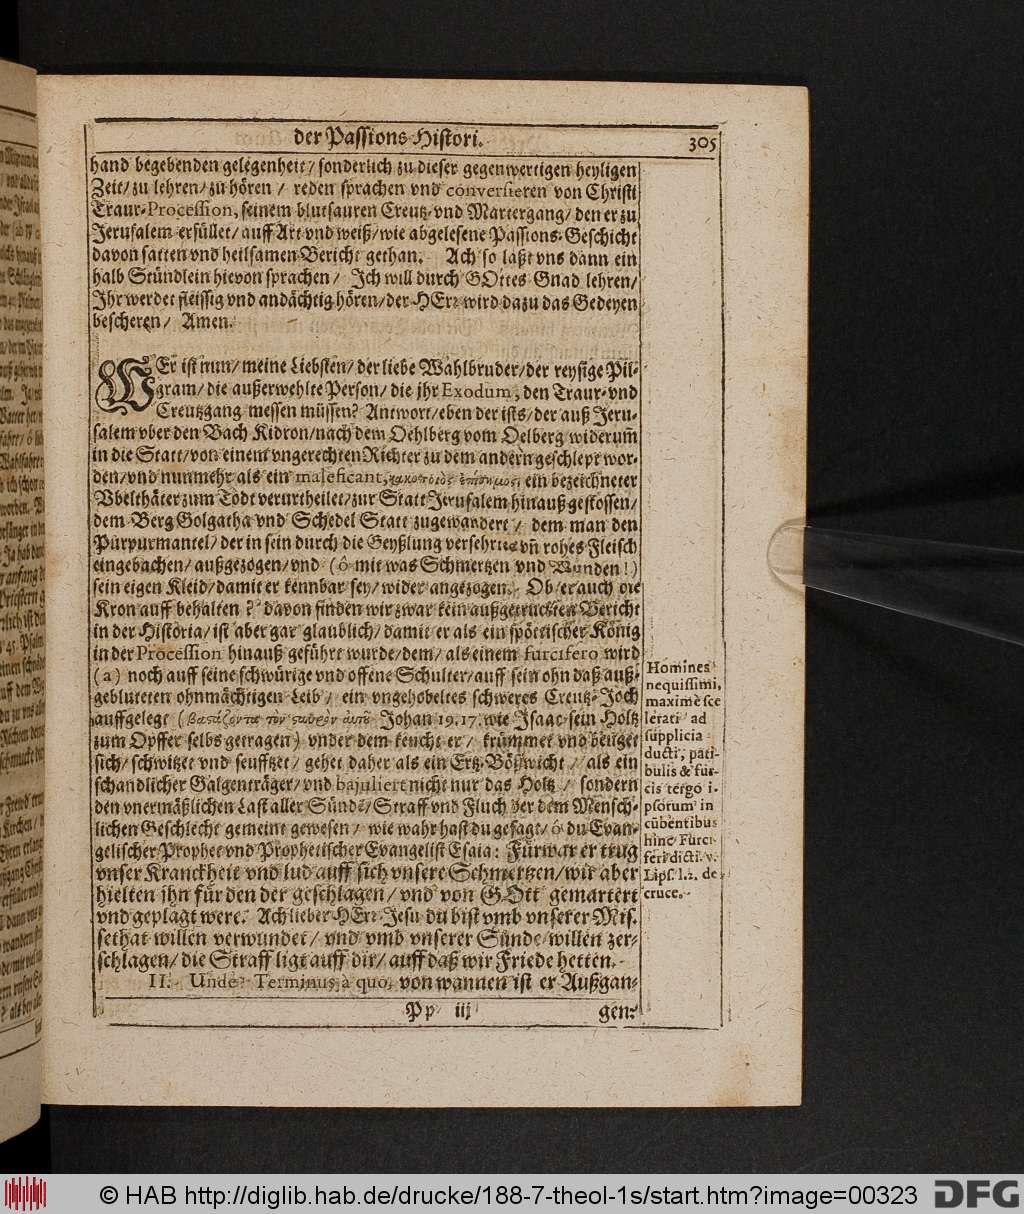 der Passions Histori. 305
hand begebenden gelegenheit / sonderlich zu dieser gegenwertigen heyligen
Zeit / zu lehren / zu hören / reden sprachen vnd conversieren von Christi
Traur-Procession, seinem blutsauren Creutz-vnd Martergang / den er zu
Jerusalem erfüllet / auff Art vnd weiß / wie abgelesene Passions-Geschicht
davon satten vnd heilsamen Bericht gethan. Ach so laßt vns dann ein
halb Stündlein hievon sprachen / Ich will durch GOttes Gnad lehren /
Ihr werdet fleissig vnd andächtig hören / der HErr wird dazu das Gedeyen
bescheren / Amen.
WEr ist nun / meine Liebsten / der liebe Wahlbruder / der reysige Pil-
gram / die außerwehlte Person / die jhr Exodum, den Traur-vnd
Creutzgang messen müssen? Antwort / eben der ists / der auß Jeru-
salem vber den Bach Kidron / nach dem Oehlberg vom Oelberg widerum̃
in die Statt / von einem vngerechten Richter zu dem andern geschlept wor-
den / vnd nunmehr als ein maleficant, κακοποιὸς ἐπίσημος, ein bezeichneter
Vbelthäter zum Todt verurtheilet / zur Statt Jerusalem hinauß gestossen /
dem Berg Golgatha vnd Schedel Statt zugewandert / dem man den
Purpurmantel / der in sein durch die Geyßlung versehrtes vñ rohes Fleisch
eingebachen / außgezogen / vnd (ô mit was Schmertzen vnd Wunden!)
sein eigen Kleid / damit er kennbar sey / wider angezogen. Ob er auch die
Kron auff behalten? davon finden wir zwar kein außgetruckten Bericht
in der Historia / ist aber gar glaublich / damit er als ein spöttischer König
in der Procession hinauß geführt wurde / dem / als einem furcifero wird
(a) noch auff seine schwürige vnd offene Schulter / auff sein ohn daß auß-
gebluteten ohnmächtigen Leib / ein vngehobeltes schweres Creutz-Joch
auffgelegt (βαςάζοντα τὸν ςαυρὸν αὐτοῦ Johan 19.17. wie Isaac sein Holtz
zum Opffer selbs getragen) vnder dem keucht er / krümmet vnd beuget
sich / schwitzet vnd seufftzet / gehet daher als ein Ertz-Bößwicht / als ein
schandlicher Galgenträger / vnd bajuliert nicht nur das Holtz / sondern
den vnermäßlichen Last aller Sünde / Straff vnd Fluch der dem Mensch-
lichen Geschlecht gemeint gewesen / wie wahr hast du gesagt / ô du Evan-
gelischer Prophet vnd Prophetischer Evangelist Esaia: Fürwar er trug
vnser Kranckheit vnd lud auff sich vnsere Schmertzen / wir aber
hielten ihn für den der geschlagen / vnd von GOtt gemartert
vnd geplagt were. Ach lieber HErr Jesu du bist vmb vnserer Mis-
sethat willen verwundet / vnd vmb vnserer Sünde willen zer-
schlagen / die Straff ligt auff dir / auff daß wir Friede hetten.
II. Unde? Terminus à quo, von wannen ist er Außgan-
Pp iij gen?
Homines
nequissimi,
maximè sce
lerati ad
supplicia
ducti, pati-
bulis & fur-
cis tergo i-
psorum in
cūbentibus
hinc Furci-
feri dicti. v.
Lips. l. 2. de
cruce.
© HAB http://diglib.hab.de/drucke/188-7-theol-1s/start.htm?image=00323
DFG